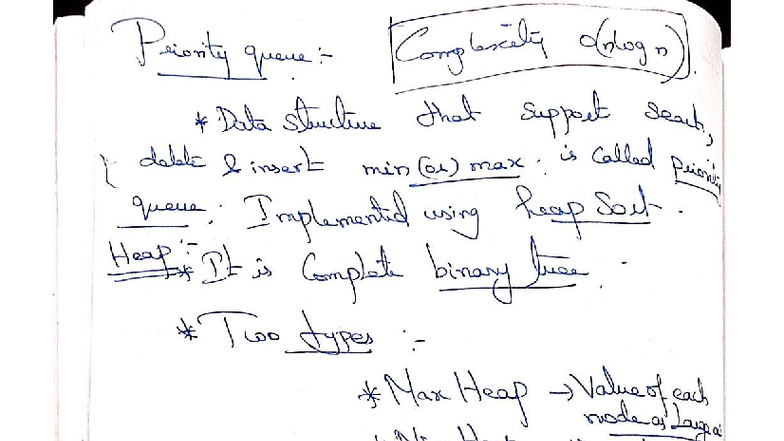 Priority queue :-
Complexity O(n log n)
* Data structure that support search,
delete & insert min (or) max. is called priority
queue. Implemented using heap Sort.
Heap :-
* It is Complete binary tree.
* Two types :-
* Max Heap → Value of each
node as Large
* Min Heap